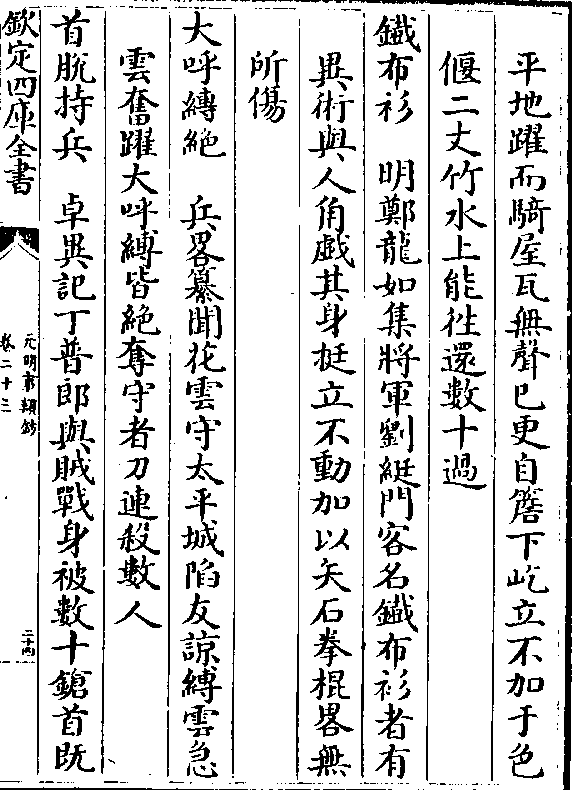 平地躍而騎屋瓦無聲已更自簷下屹立不加于色
偃二丈竹水上能徃還數十過
鐵布衫　明鄭龍如集將軍劉綎門客名鐵布衫者有
異術與人角戲其身挺立不動加以矢石拳棍畧無
所傷
大呼縳絶　兵畧纂聞花雲守太平城陷友諒縳雲急
雲奮躍大呼縳皆絶奪守者刀連殺數人
首脫持兵　卓異記丁普郎與賊戰身被數十鎗首既
欽定四庫全書
元明事類鈔
卷二十三
二十四